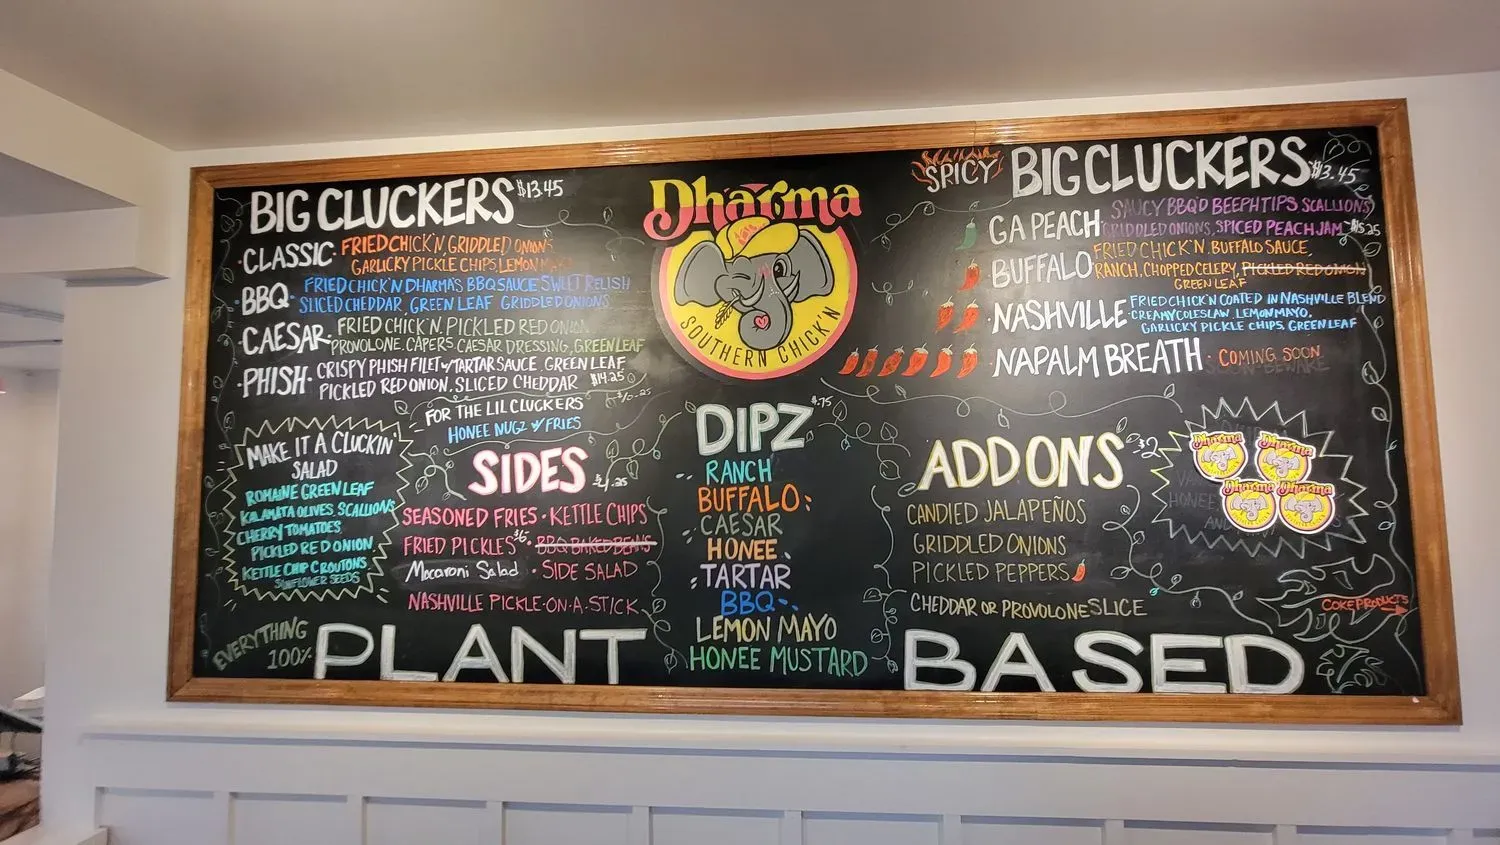 BIG CLUCKERS $13.45
• CLASSIC • FRIED CHICK'N, GRIDDLED ONIONS
GARLICKY PICKLE CHIPS, LEMON MAYO
• BBQ • FRIED CHICK'N DHARMA'S BBQ SAUCE SWEET RELISH
SLICED CHEDDAR, GREEN LEAF GRIDDLED ONIONS
• CAESAR • FRIED CHICK'N, PICKLED RED ONION,
PROVOLONE, CAPERS CAESAR DRESSING, GREEN LEAF
• PHISH • CRISPY PHISH FILET w/ TARTAR SAUCE, GREEN LEAF
PICKLED RED ONION, SLICED CHEDDAR $14.25
FOR THE LIL CLUCKERS $10.25
HONEE NUGZ w/ FRIES
MAKE IT A CLUCKIN'
SALAD
ROMAINE GREEN LEAF
KALAMATA OLIVES, SCALLIONS
CHERRY TOMATOES
PICKLED RED ONION,
KETTLE CHIP CROUTONS
SUNFLOWER SEEDS
SIDES $4.25
SEASONED FRIES • KETTLE CHIPS
FRIED PICKLES $6 • BBQ BAKED BEANS
Macaroni Salad • SIDE SALAD
NASHVILLE PICKLE-ON-A-STICK
EVERYTHING
100%
PLANT
Dharma
SOUTHERN CHICK'N
DIPZ $.75
RANCH
BUFFALO
CAESAR
HONEE
TARTAR
BBQ
LEMON MAYO
HONEE MUSTARD
SPICY BIG CLUCKERS $13.45
• GA PEACH • SAUCY BBQ'D BEEPH TIPS, SCALLIONS
GRIDDLED ONIONS, SPICED PEACH JAM $15.25
• BUFFALO • FRIED CHICK'N, BUFFALO SAUCE,
RANCH, CHOPPED CELERY, PICKLED RED ONION
GREEN LEAF
• NASHVILLE • FRIED CHICK'N COATED IN NASHVILLE BLEND
CREAMY COLESLAW, LEMON MAYO,
GARLICKY PICKLE CHIPS, GREEN LEAF
• NAPALM BREATH • COMING SOON
SOON-BEWARE
ADD ONS $2
CANDIED JALAPEÑOS
GRIDDLED ONIONS
PICKLED PEPPERS
CHEDDAR OR PROVOLONE SLICE
Dharma
Dharma
Dharma
Dharma
COKE PRODUCTS
BASED